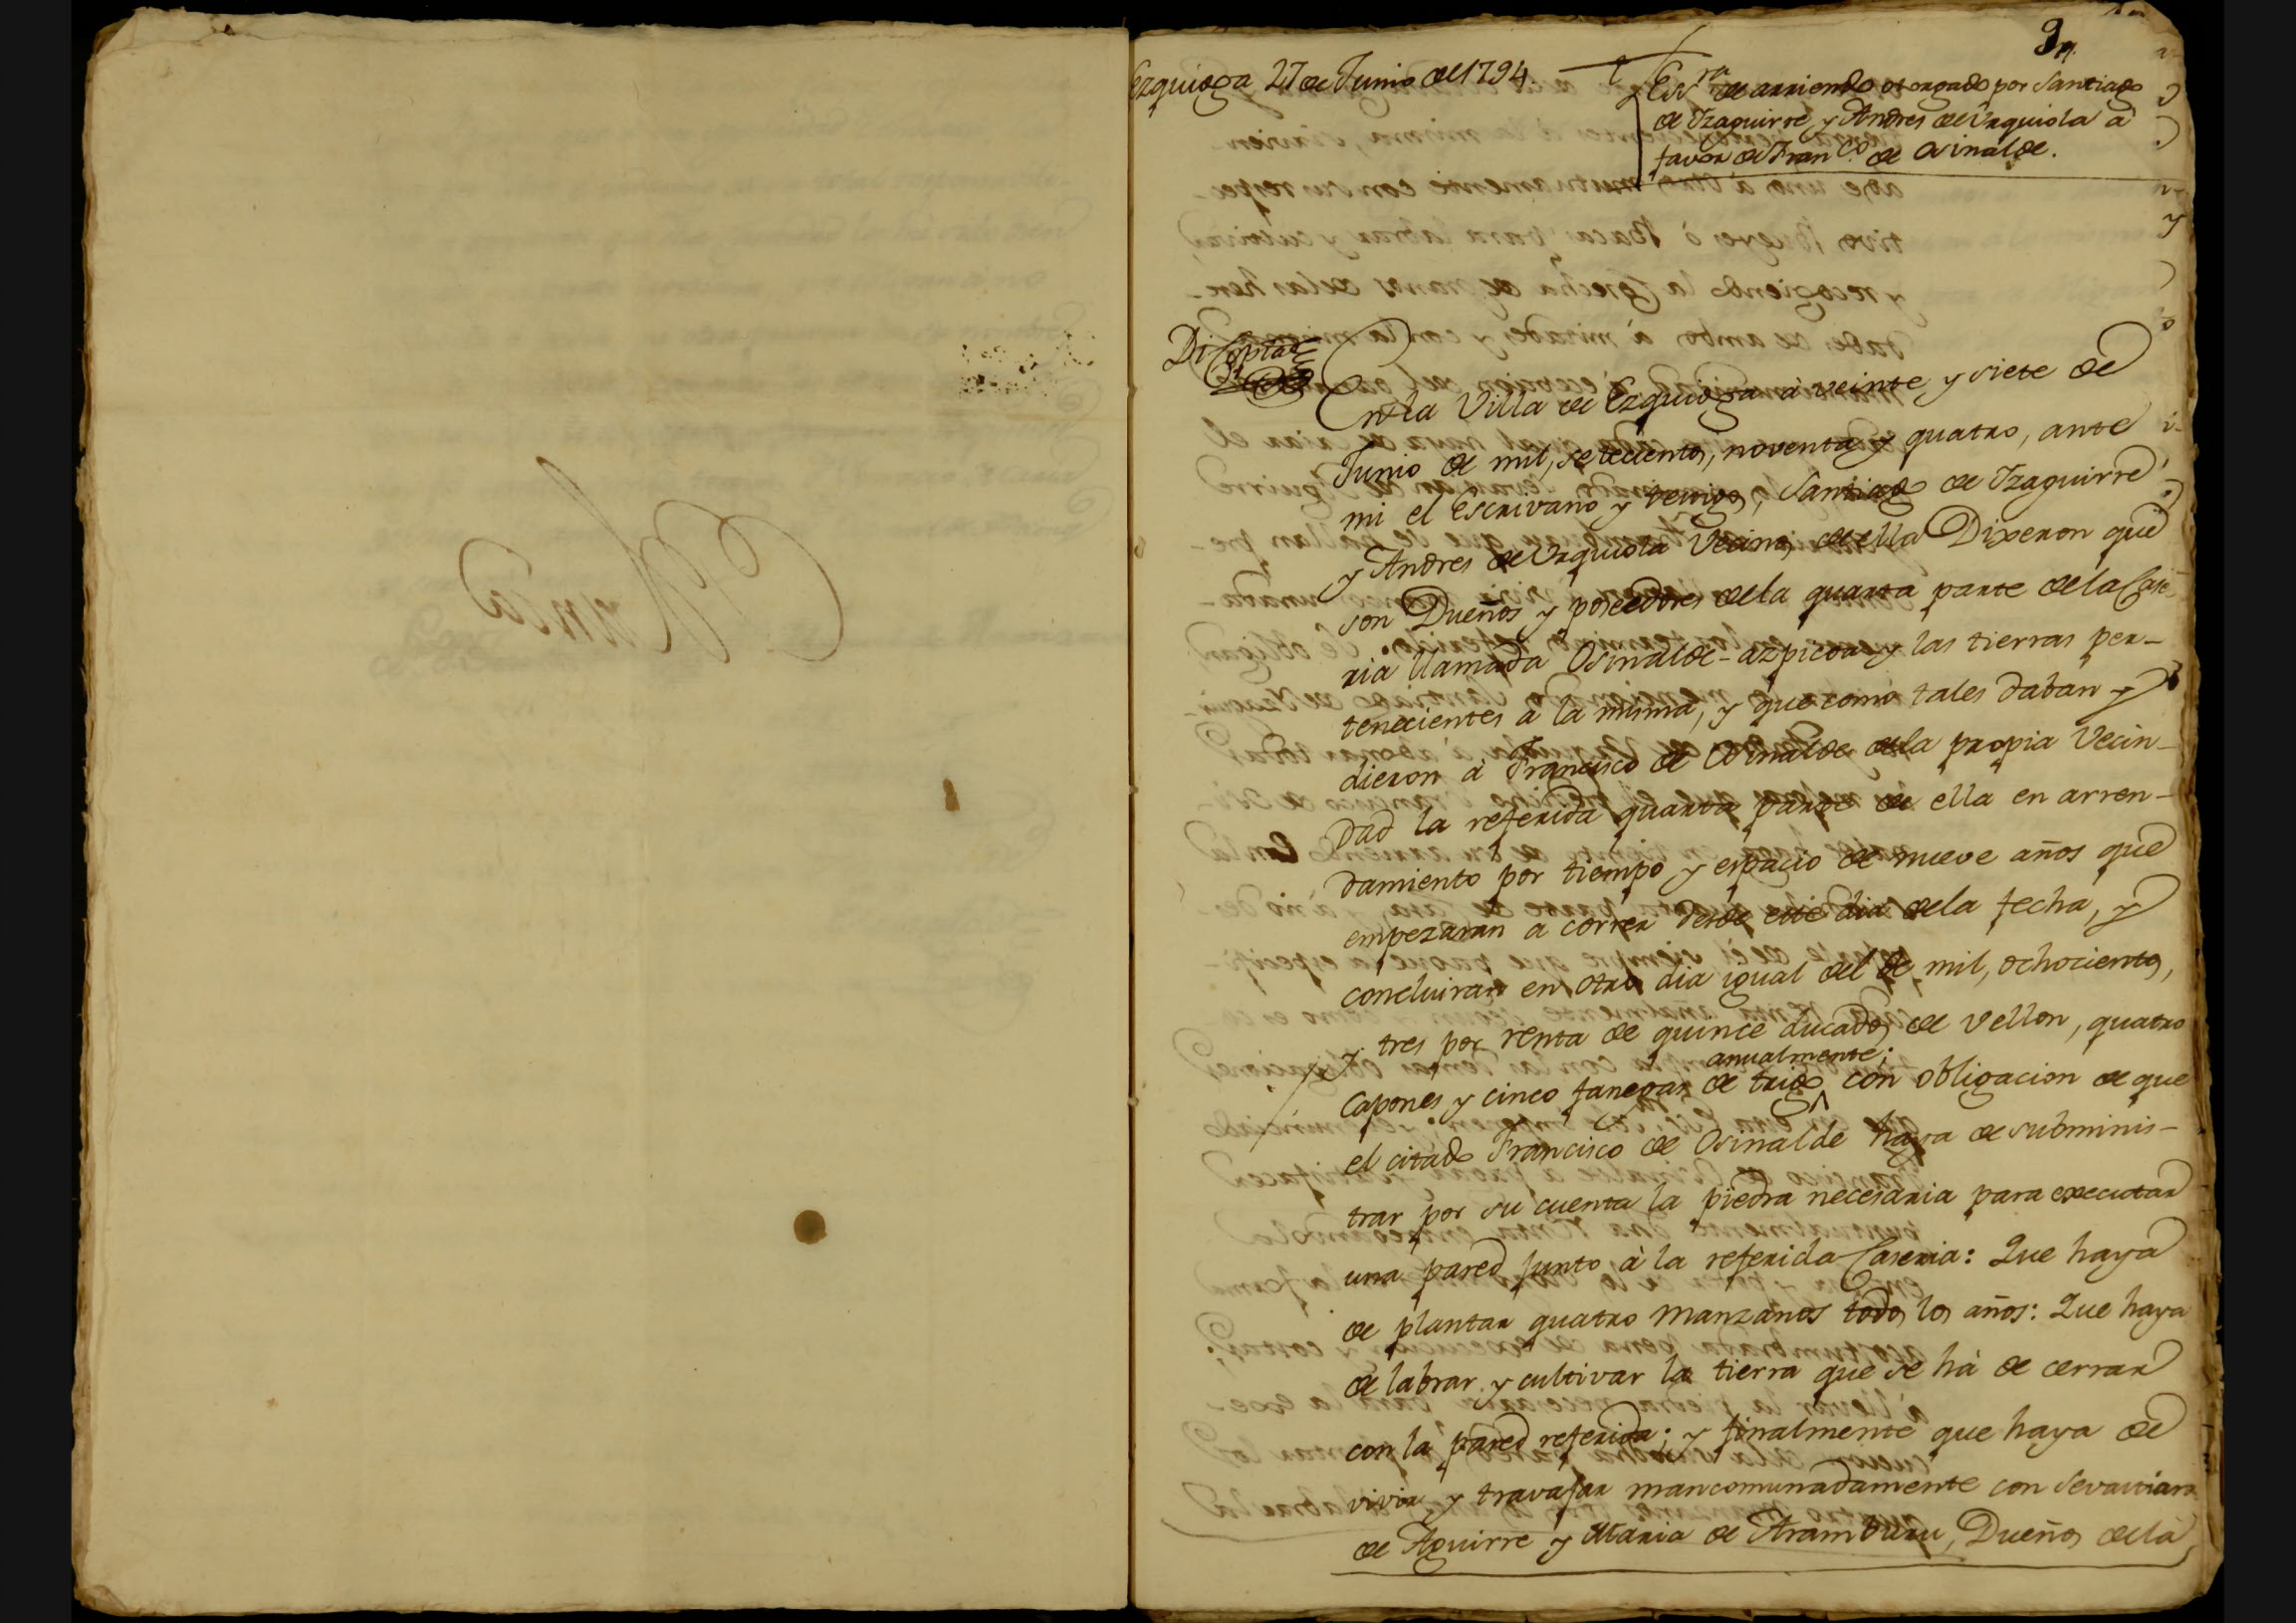 9
Ezquioga 27 de Junio de 1794
Essra. de arriendo otorgado por Santiago
de Yzaguirre y Andres de Urquiola à
favor de Franco. de Osinalde.
Di Copia
En la Villa de Ezquioga à veinte y siete de
Junio de mil, setecientos, noventa y quatro, ante
mi el Escrivano y testigos, Santiago de Yzaguirre
y Andres de Urquiola Vecinos de ella Dixeron que
son Dueños y poseedores de la quarta parte de la Case-
ria llamada Osinalde-azpicoa y las tierras per-
tenecientes à la misma, y que como tales daban y
dieron à Francisco de Osinalde de la propia Vecin-
dad la referida quarta parte de ella en arren-
damiento por tiempo y espacio de nueve años que
empezaran a correr desde este dia de la fecha, y
concluiran en otro dia igual del de mil, ochocientos,
y tres por renta de quince ducados de vellon, quatro
anualmente;
Capones y cinco fanegas de trigo con obligacion de que
el citado Francisco de Osinalde haya de subminis-
trar por su cuenta la piedra necesaria para executar
una pared junto à la referida Caseria: Que haya
de plantar quatro manzanos todos los años: Que haya
de labrar y cultivar la tierra que se hà de cerrar
con la pared referida; y finalmente que haya de
vivir y travajar mancomunadamente con Sevastian
de Aguirre y Maria de Aramburu, Dueños de la